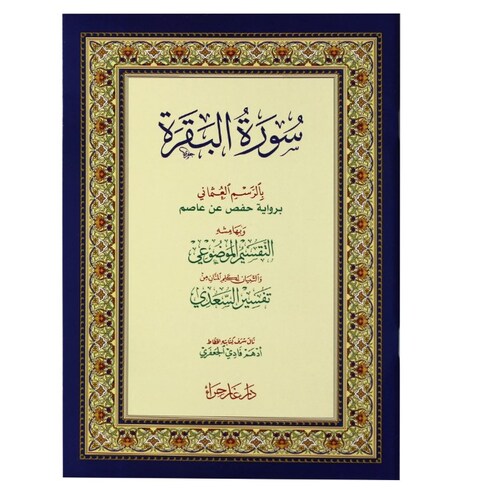 سُورَةُ البَقَرَة
بِالرَّسمِ العُثمَانيِ
برواية حفص عن عاصم
وَبهَامِشِهِ
التَّقسِيمُ الموضُوعِي
وَالتِّبيَان لِكَلِمَاتٍ مِن
تَفسِيرُ السَّعدِي
نَالَ شَرَفَ كِتَابَتِهِ الخَطَّاط
أدهَم فَادِي الجَعفَرِي
دَار غَار حِرَاء